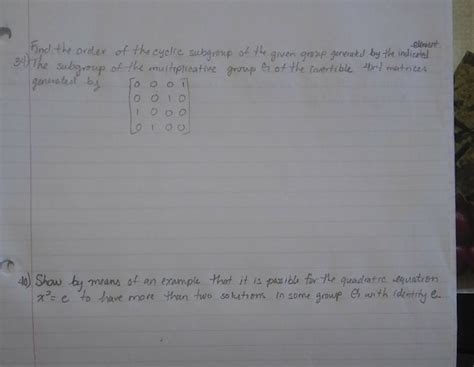 Find the order of the cyclic subgroup of the given group generated by the indicated element.
The subgroup of the multiplicative group G of the invertible 4x4 matrices
generated by
0 0 0 1
0 0 1 0
1 0 0 0
0 1 0 0
40) Show by means of an example that it is possible for the quadratic equation
x² = e to have more than two solutions in some group G with identity e.